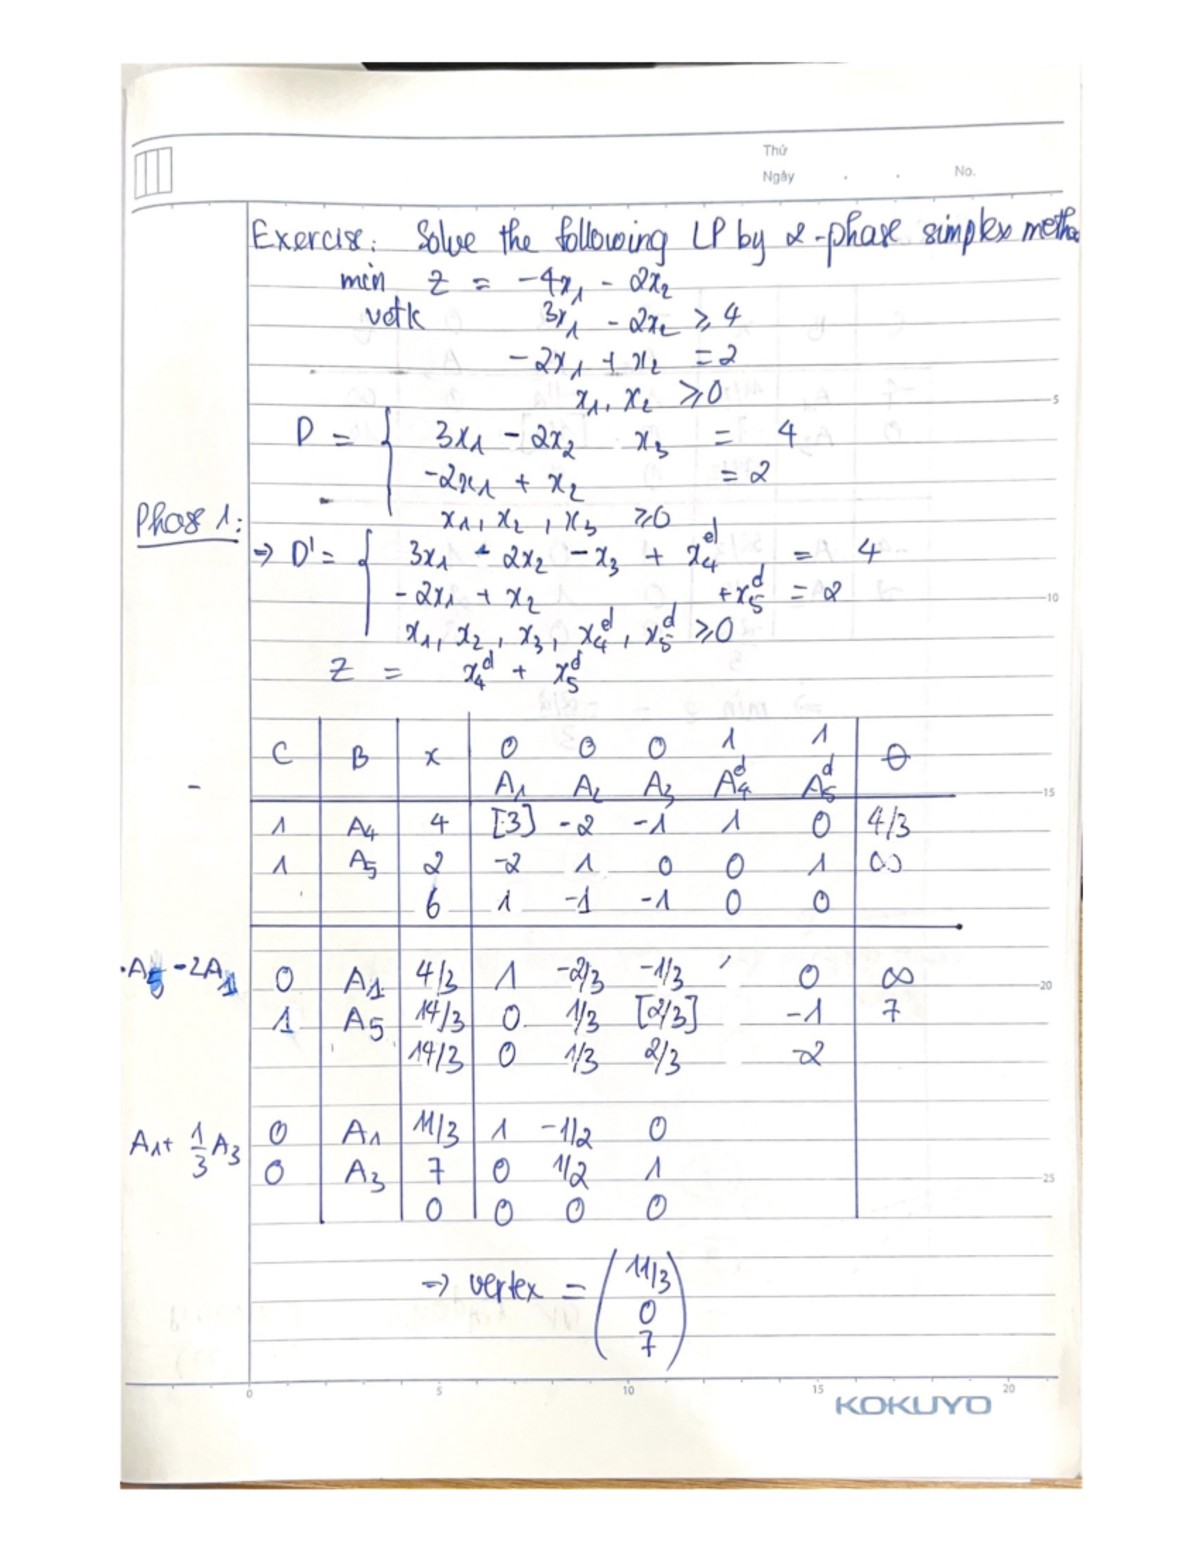 Thứ
Ngày . . No.
Exercise: Solve the following LP by 2-phase simplex metho
min z = -4x₁ - 2x₂
3x₁ - 2x₂ ≥ 4
-2x₁ + x₂ = 2
x₁, x₂ ≥ 0
D = { 3x₁ - 2x₂ x₃ = 4
-2x₁ + x₂ = 2
x₁, x₂, x₃ ≥ 0
Phase 1:
⇒ D' = { 3x₁ - 2x₂ - x₃ + x₄ᵈ = 4
-2x₁ + x₂ + x₅ᵈ = 2
x₁, x₂, x₃, x₄ᵈ, x₅ᵈ ≥ 0
Z = x₄ᵈ + x₅ᵈ
C B x 0 0 0 1 1 θ
A₁ A₂ A₃ A₄ᵈ A₅ᵈ
1 A₄ 4 [3] -2 -1 1 0 4/3
1 A₅ 2 -2 1 0 0 1 ∞
6 1 -1 -1 0 0
A₅ -2A₁ 0 A₁ 4/3 1 -2/3 -1/3 0 ∞
1 A₅ 14/3 0 1/3 [2/3] -1 7
14/3 0 1/3 2/3 -2
A₁+ 1/3 A₃ 0 A₁ 11/3 1 -1/2 0
0 A₃ 7 0 1/2 1
0 0 0 0
⇒ vertex = (11/3
0
7)
5
10
15
20
25
0 5 10 15 20
KOKUYO